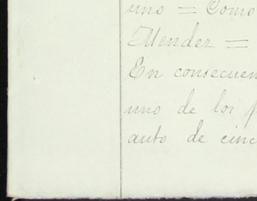 uno = Como
Mendez =
En consecuen
uno de los p
auto de cinc